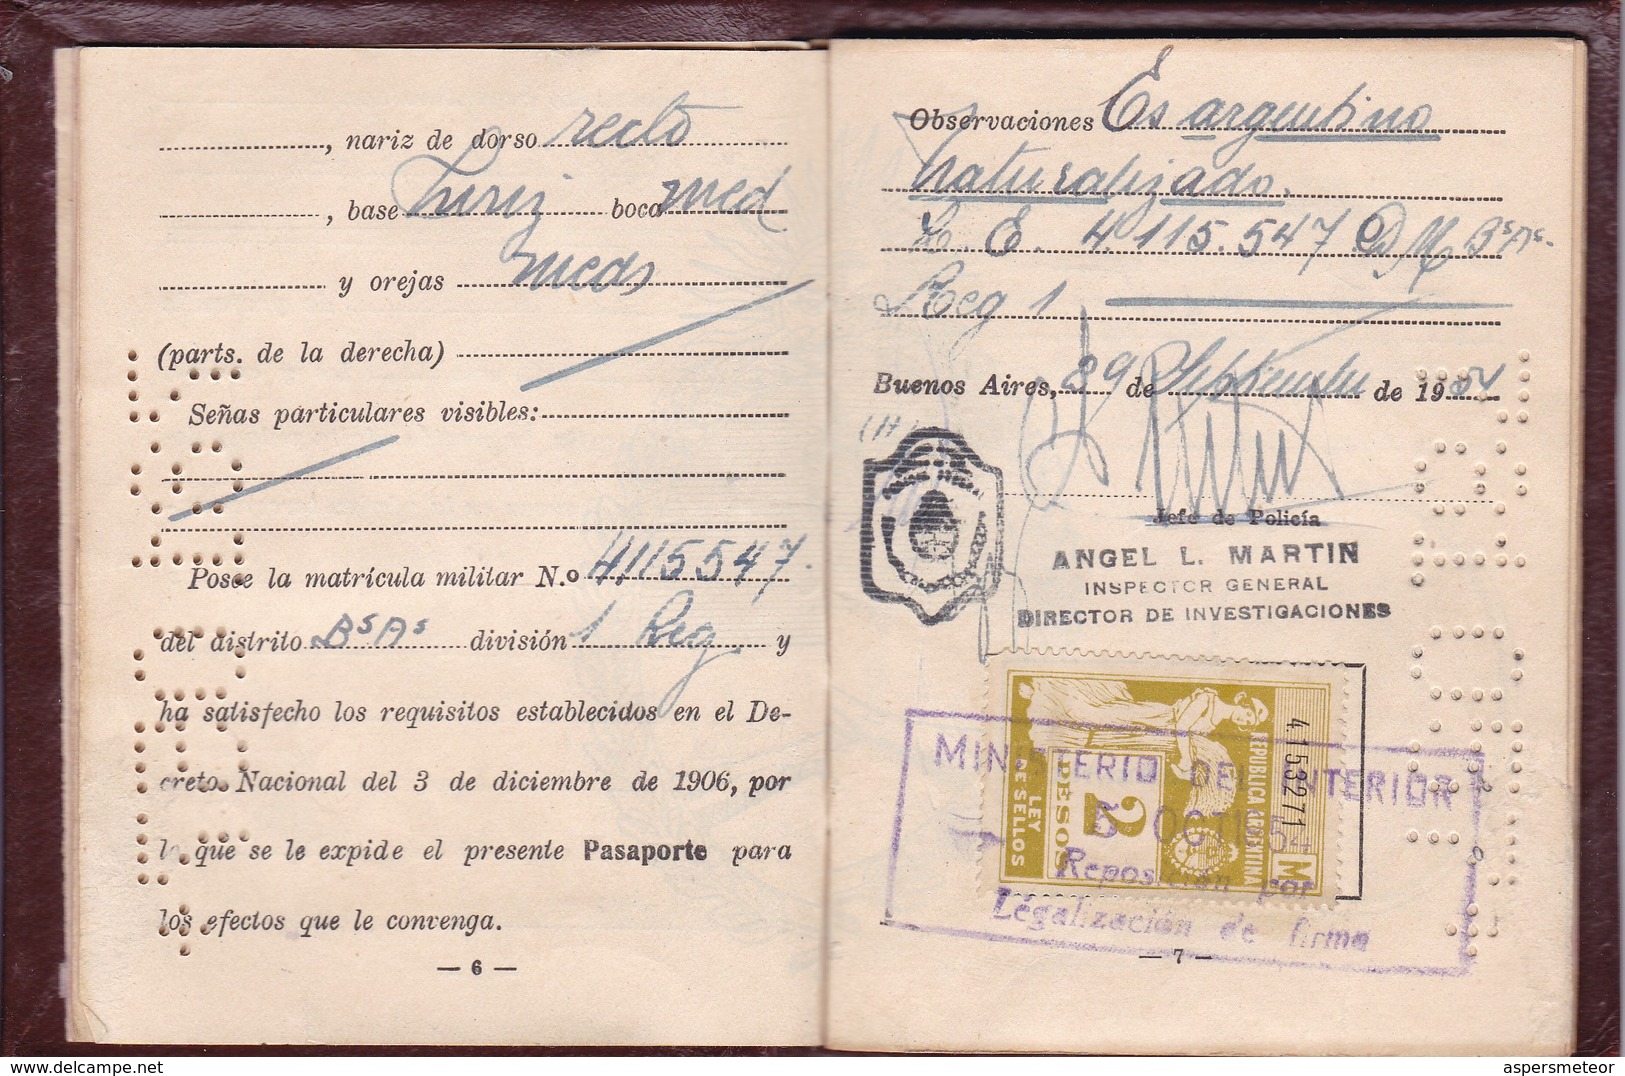 , nariz de dorso recto
, base horiz boca med
y orejas meds
(parts. de la derecha)
Señas particulares visibles:
Posee la matrícula militar N.o 4.115547.
del distrito Bs As división 1 Reg y
ha satisfecho los requisitos establecidos en el De-
creto Nacional del 3 de diciembre de 1906, por
lo que se le expide el presente Pasaporte para
los efectos que le convenga.
— 6 —
Observaciones Es argentino
naturalizado.
L. E. 4.115.547 DM Bs As.
Reg 1
Buenos Aires, 29 de Septiembre de 1954
Jefe de Policía
ANGEL L. MARTIN
INSPECTOR GENERAL
DIRECTOR DE INVESTIGACIONES
REPUBLICA ARGENTINA
M
4153271
2
PESOS
LEY
DE SELLOS
MINISTERIO DEL INTERIOR
5 OCT 1954
Reposición por
Legalización de firma
— 7 —
aspersmeteor